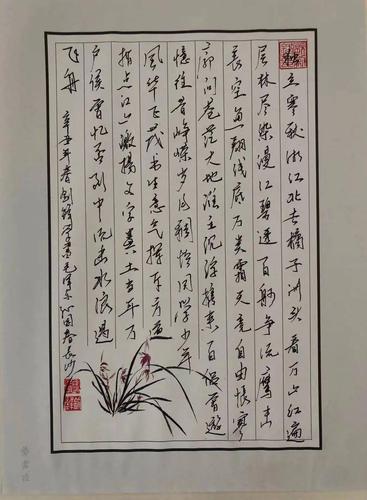 独立寒秋湘江北去橘子洲头看万山红遍
层林尽染漫江碧透百舸争流鹰击
长空鱼翔浅底万类霜天竞自由怅寥
廓问苍茫大地谁主沉浮携来百侣曾游
忆往昔峥嵘岁月稠恰同学少年
风华正茂书生意气挥斥方遒
指点江山激扬文字粪土当年万
户侯曾记否到中流击水浪遏
飞舟 辛丑年春 书毛泽东沁园春长沙